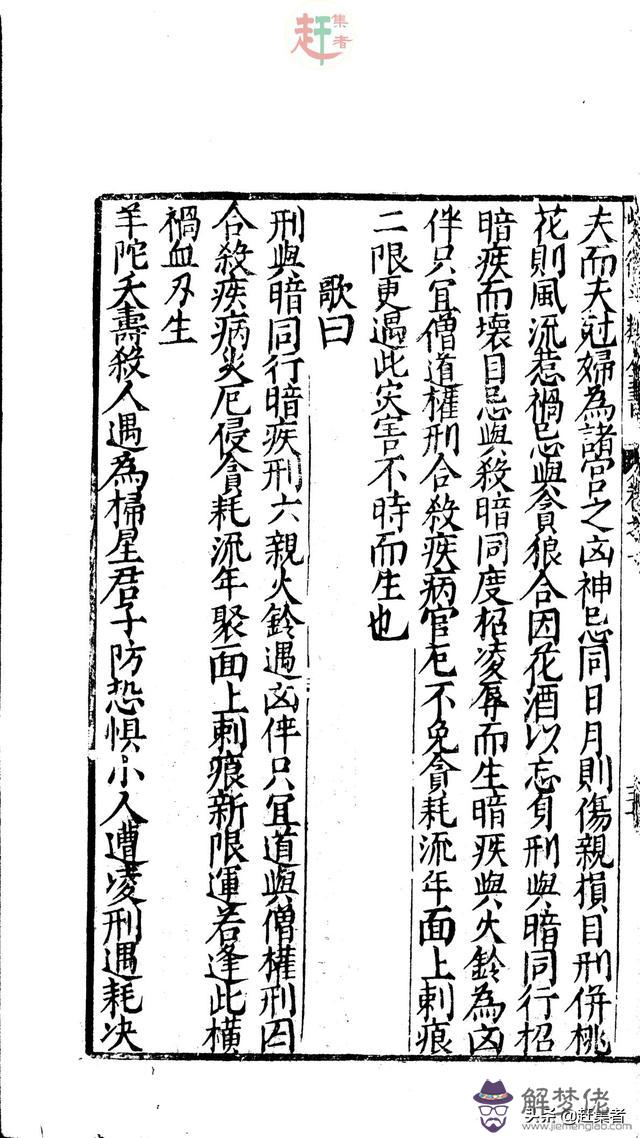 赶集者
夫而夫尅婦為諸宮之凶神忌同日月則傷親損目刑併桃
花則風流惹禍忌與貪狼合因花酒以忘身刑與暗同行招
暗疾而壞目忌與殺暗同度招凌辱而生暗疾與火鈴為凶
伴只宜僧道權刑合殺疾病官厄不免貪耗流年面上刺痕
二限更遇此災害不時而生也
歌曰
刑與暗同行暗疾刑六親火鈴遇凶伴只宜道與僧權刑囚
合殺疾病災厄侵貪耗流年聚面上刺痕新限運若逢此橫
禍血刃生
羊陀夭壽殺人遇為掃星君子防恐懼小人遭凌刑遇耗決
解梦佬
www.jiemenglao.com
头条@赶集者